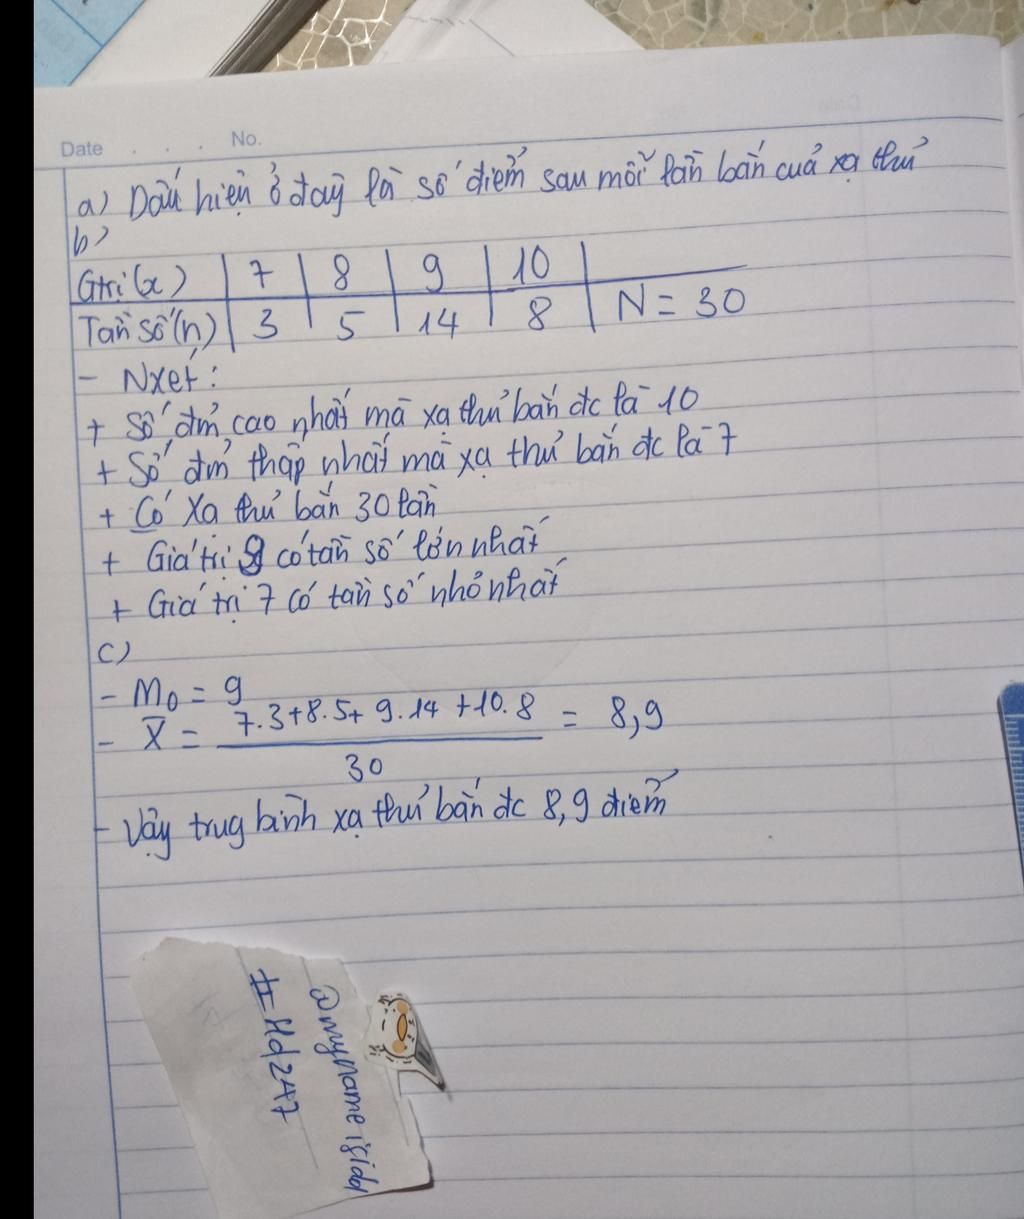 Date . . . . No.
a) Dấu hiện ở đây là số điểm sau mỗi lần bắn của xạ thủ
b)
Gtrị (x) | 7 | 8 | 9 | 10 |
Tần số (n) | 3 | 5 | 14 | 8 | N = 30
- Nxét :
+ Số đm̉ cao nhất mà xạ thủ bắn đc là 10
+ Số đm̉ thấp nhất mà xạ thủ bắn đc là 7
+ Có Xạ thủ bắn 30 lần
+ Giá trị 9 có tần số lớn nhất
+ Giá trị 7 có tần số nhỏ nhất
c)
- M₀ = 9
- X̄ = (7.3+8.5+ 9.14 +10.8) / 30 = 8,9
- Vậy trug bình xạ thủ bắn đc 8,9 điểm
@myname isidol
# Hd247